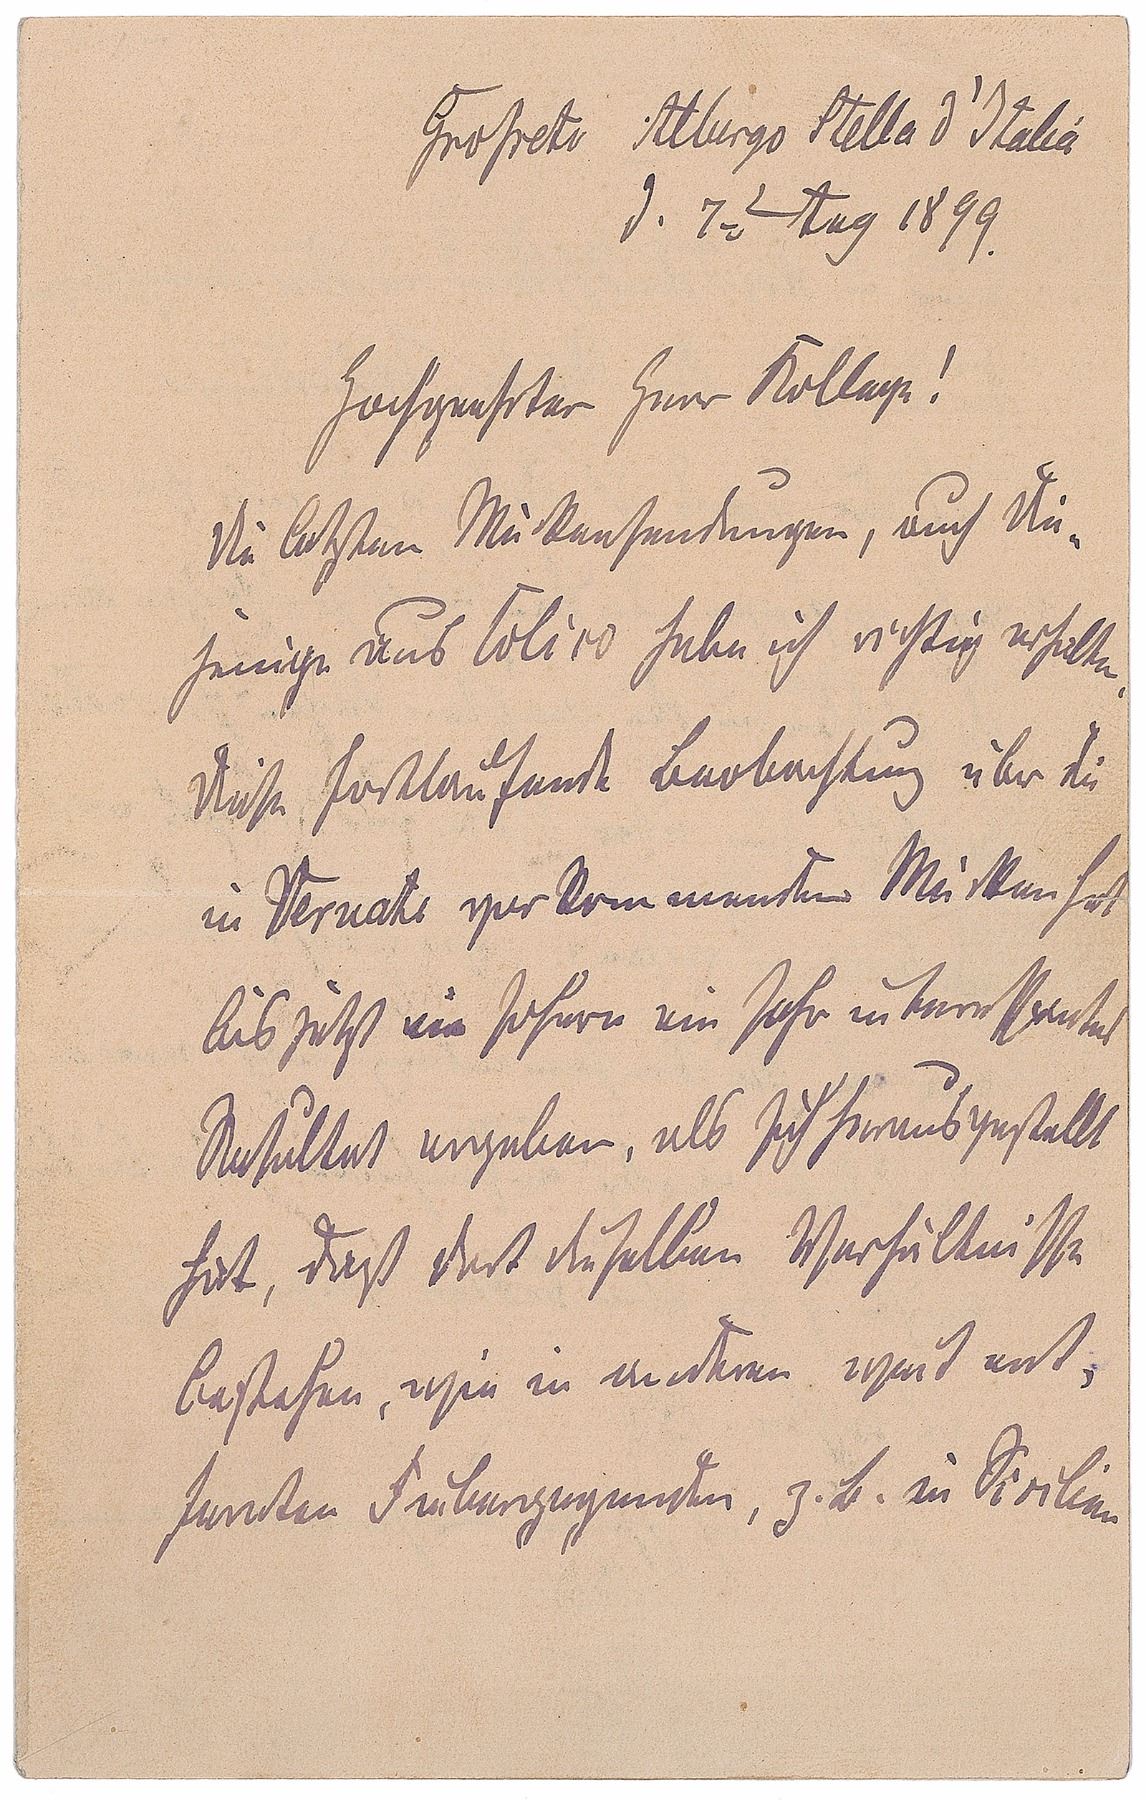 Grosseto Albergo Stella d'Italia
d. 7ten Aug 1899.
Hochgeehrter Herr Kollege!
Die letzten Mückensendungen, auch die-
jenige aus Colico habe ich richtig erhalten.
Diese fortlaufende Beobachtung über die
in Vernate vorkommenden Mücken hat
bis jetzt in sofern ein sehr interessantes
Resultat ergeben, als sich herausgestellt
hat, daß dort dieselben Verhältnisse
bestehen, wie in anderen weit ent-
fernten Fiebergegenden, z. B. in Sicilien